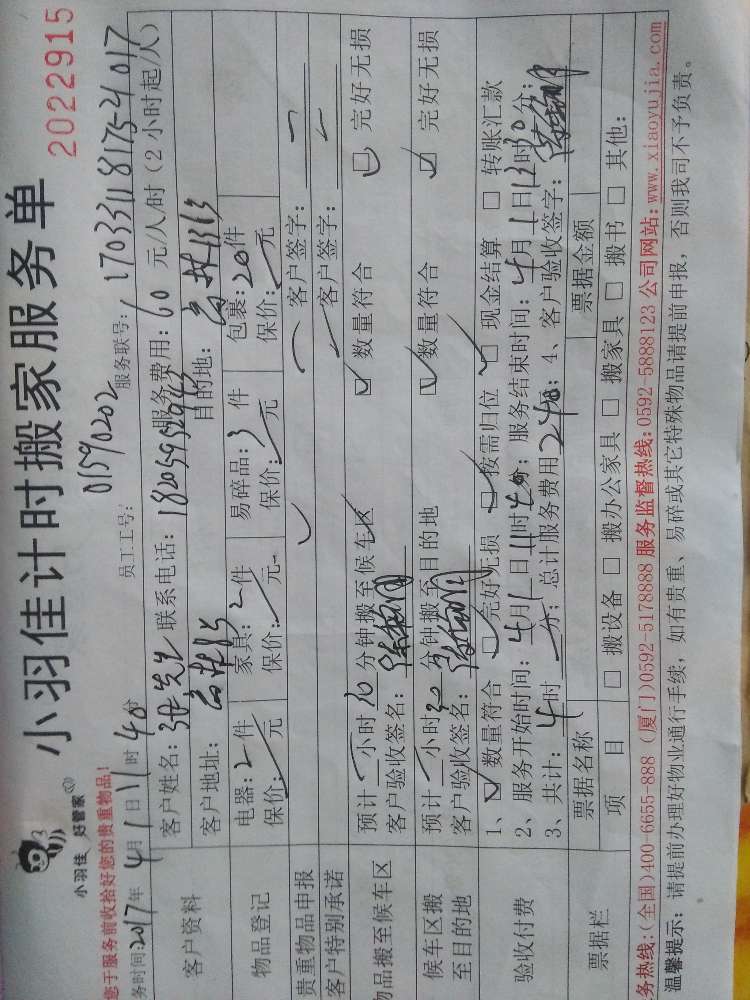 小羽佳计时搬家服务单
小羽佳 好管家
2022915
您于服务前收拾好您的贵重物品!
员工工号: 01590202 服务联号: 170331181175-21017
务时间2017年4月1日11时40分 服务费用: 60 元/人/时 (2小时起/人)
客户资料 客户姓名: 联系电话: 目的地:
客户地址:
物品登记 电器: 2件 家具: 2件 易碎品: 3件 包裹: 20件
保价: 元 保价: 元 保价: 元 保价: 元
贵重物品申报 客户签字:
客户特别承诺 客户签字:
物品搬至候车区 预计 小时10分钟搬至候车区 ☑ 数量符合 ☑ 完好无损
客户验收签名:
候车区搬至目的地 预计 小时30分钟搬至目的地 ☑ 数量符合 ☑ 完好无损
客户验收签名:
验收付费 1、☑ 数量符合 ☑ 完好无损 ☑ 按需归位 ☑ 现金结算 □ 转账汇款
2、服务开始时间: 4月1日11时40分; 服务结束时间: 4月1日13时 分;
3、共计: 4时 分; 总计服务费用240; 4、客户验收签字:
票据栏 票据名称 票据金额
项目 □ 搬设备 □ 搬办公家具 □ 搬家具 □ 搬书 □ 其他:
务热线:(全国)400-6655-888 (厦门)0592-5178888 服务监督热线:0592-5888123 公司网站:www.xiaoyujia.com
温馨提示: 请提前办理好物业通行手续, 如有贵重、易碎或其它特殊物品请提前申报, 否则我司不予负责。